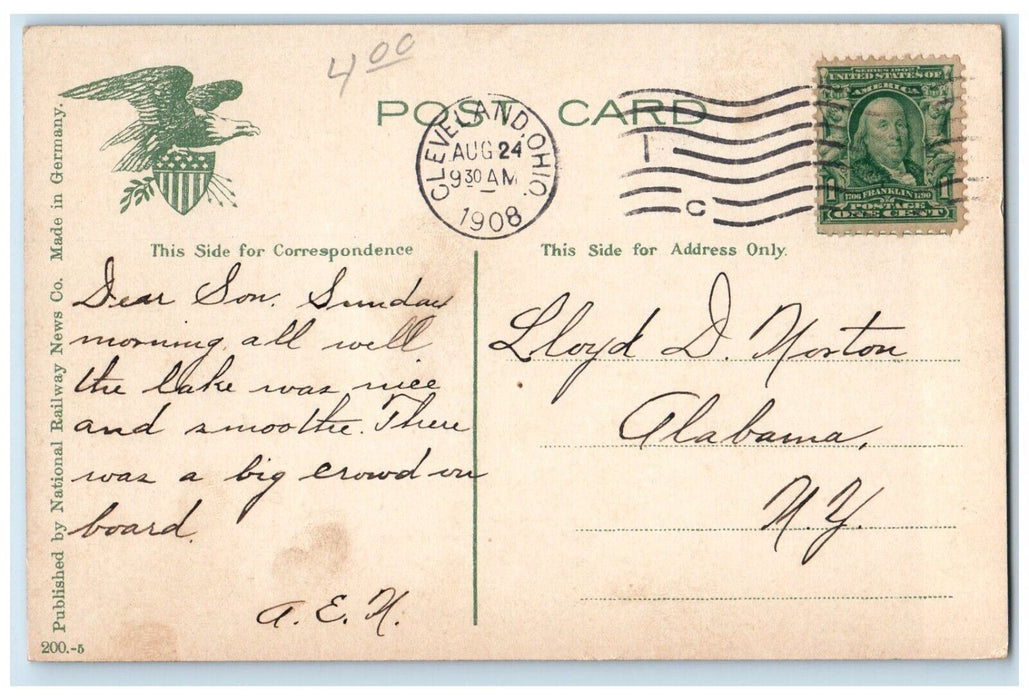 4 00
POST CARD
CLEVELAND, OHIO.
AUG 24
9 30 AM
1908
1
C
SERIES 1902
UNITED STATES OF
AMERICA
1706 FRANKLIN 1790
POSTAGE
ONE CENT
Published by National Railway News Co. Made in Germany.
This Side for Correspondence
Dear Son. Sunday
morning all well
the lake was nice
and smoothe. There
was a big crowd on
board.
A. E. N.
This Side for Address Only.
Lloyd D. Norton
Alabama,
N.Y.
200.-5